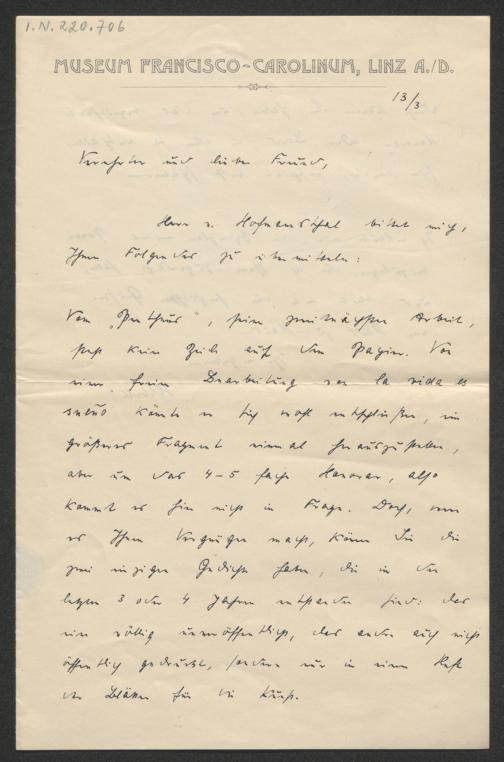 I.N. 220.706
MUSEUM FRANCISCO-CAROLINUM, LINZ A./D.
13/3
Verehrter und lieber Freund,
Herr v. Hofmansthal bittet mich,
Ihnen Folgendes zu übermitteln:
Von „Pentheus", seine zweitnächste Arbeit,
steht keine Zeile auf dem Papier. Von
einer freien Bearbeitung von la vida es
sueño könnte er sich wohl entschließen, ein
größeres Fragment einmal herauszugeben,
aber um das 4-5 fache Honorar, also
kommt es hier nicht in Frage. Doch, wenn
es Ihnen Vergnügen macht, können Sie die
zwei einzigen Gedichte haben, die in den
letzten 3 oder 4 Jahren entstanden sind: das
eine völlig unveröffentlicht, das andere auch nicht
öffentlich gedruckt, sondern nur in einem Heft
der Blätter für die Kunst.